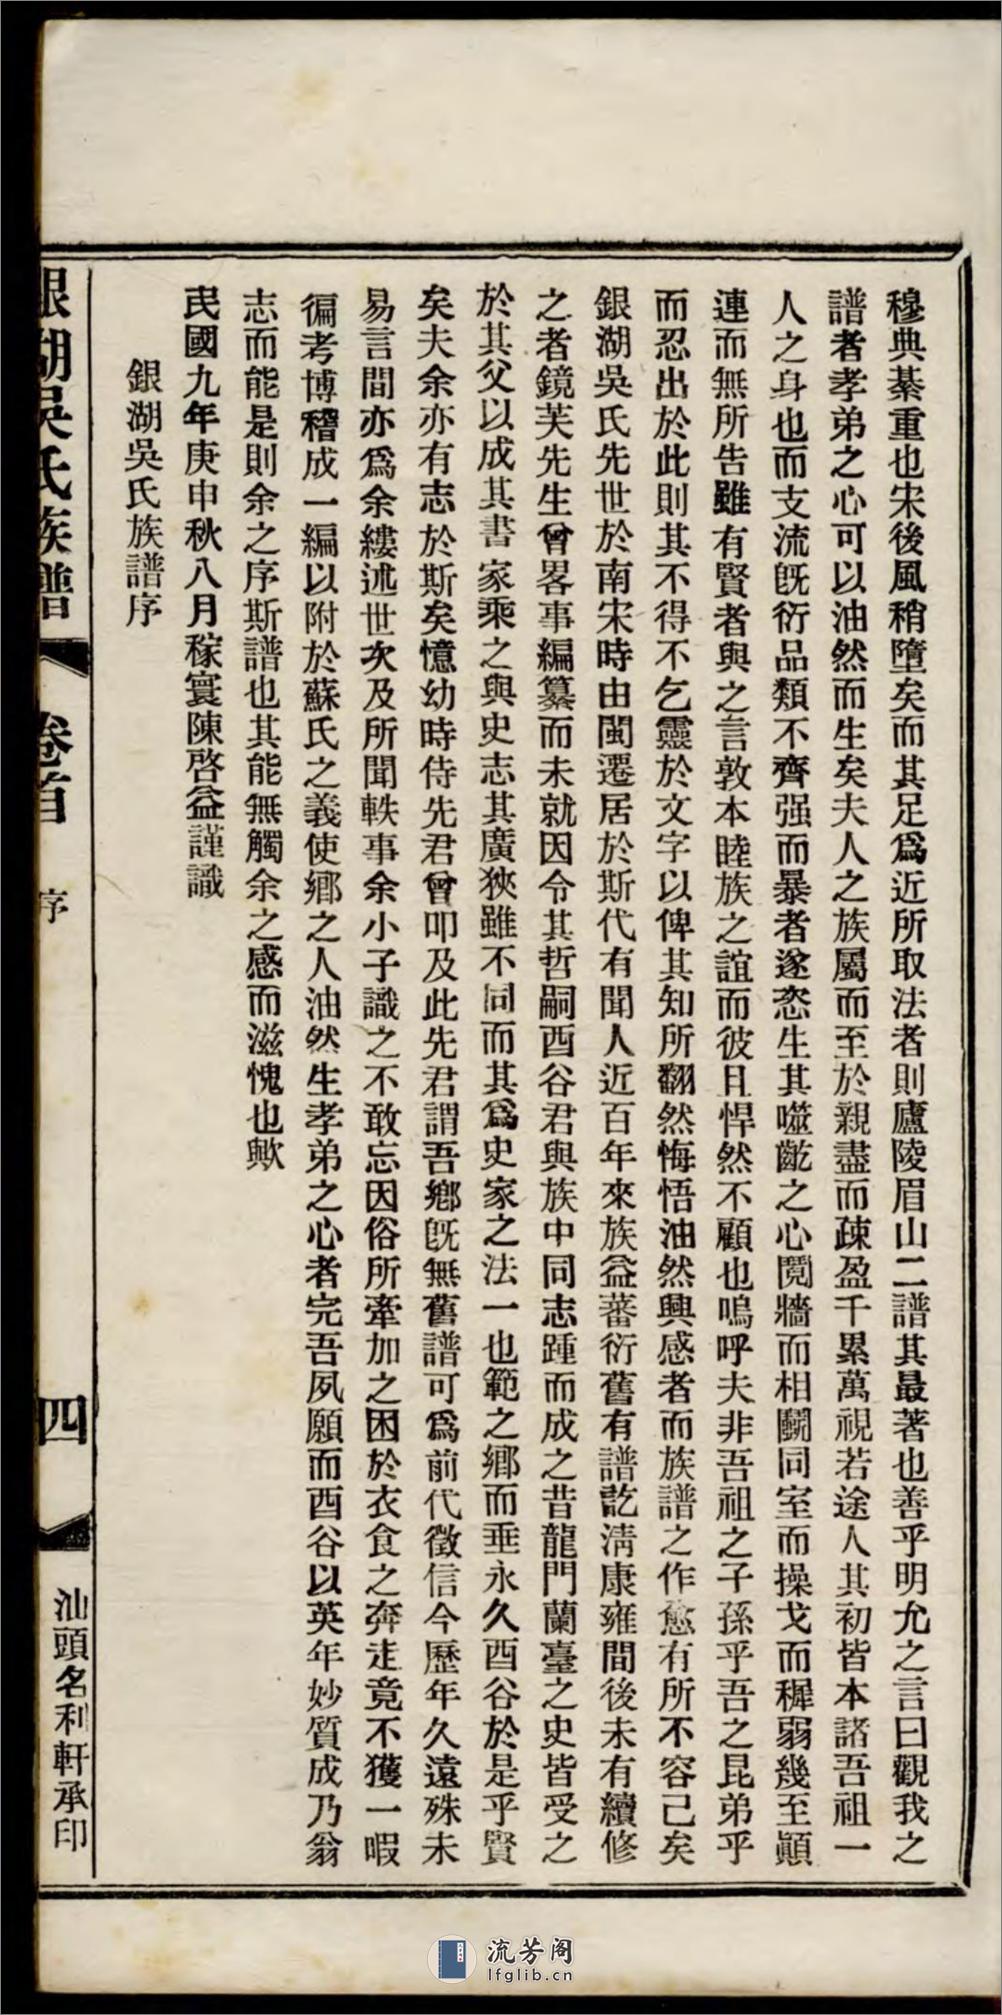 穆典綦重也宋後風稍墮矣而其足爲近所取法者則廬陵眉山二譜其最著也善乎明允之言曰觀我之
譜者孝弟之心可以油然而生矣夫人之族屬而至於親盡而疎盈千累萬視若途人其初皆本諸吾祖一
人之身也而支流旣衍品類不齊强而暴者遂恣生其噬齕之心鬩牆而相鬭同室而操戈而穉弱幾至顚
連而無所告雖有賢者與之言敦本睦族之誼而彼且悍然不顧也嗚呼夫非吾祖之子孫乎吾之昆弟乎
而忍出於此則其不得不乞靈於文字以俾其知所翻然悔悟油然興感者而族譜之作愈有所不容已矣
銀湖吳氏先世於南宋時由閩遷居於斯代有聞人近百年來族益蕃衍舊有譜訖淸康雍間後未有續修
之者鏡芙先生曾畧事編纂而未就因令其哲嗣酉谷君與族中同志踵而成之昔龍門蘭臺之史皆受之
於其父以成其書家乘之與史志其廣狹雖不同而其爲史家之法一也範之鄕而垂永久酉谷於是乎賢
矣夫余亦有志於斯矣憶幼時侍先君曾叩及此先君謂吾鄕旣無舊譜可爲前代徵信今歷年久遠殊未
易言間亦爲余縷述世次及所聞軼事余小子識之不敢忘因俗所牽加之困於衣食之奔走竟不獲一暇
徧考博稽成一編以附於蘇氏之義使鄕之人油然生孝弟之心者完吾夙願而酉谷以英年妙質成乃翁
志而能是則余之序斯譜也其能無觸余之感而滋愧也歟
民國九年庚申秋八月稼寰陳啓益謹識
銀湖吳氏族譜序
銀湖吳氏族譜 卷首 序 四 汕頭名利軒承印
流芳阁
lfglib.cn